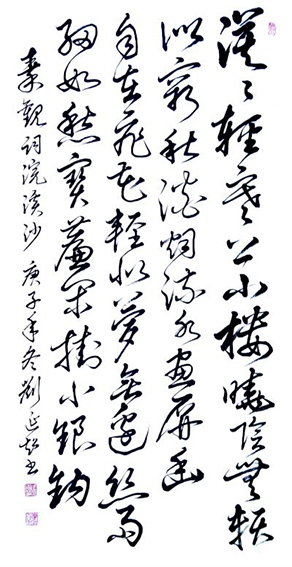 漠漠轻寒上小楼晓阴无赖
似穷秋淡烟流水画屏幽
自在飞花轻似梦无边丝雨
细如愁宝帘闲挂小银钩
秦观词浣溪沙庚子年冬刘延超书